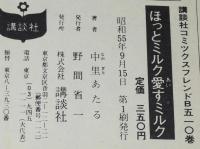 講談社コミックスフレンドB五一〇巻
ほっとミルク愛すミルク
定価 三五〇円
昭和55年9月15日 第1刷発行
著者 中里あたる
発行者 野間省一
発行所 株式会社 講談社
東京都文京区音羽
電話 東京(〇三)
振替 東京八ー三九三〇
講談社